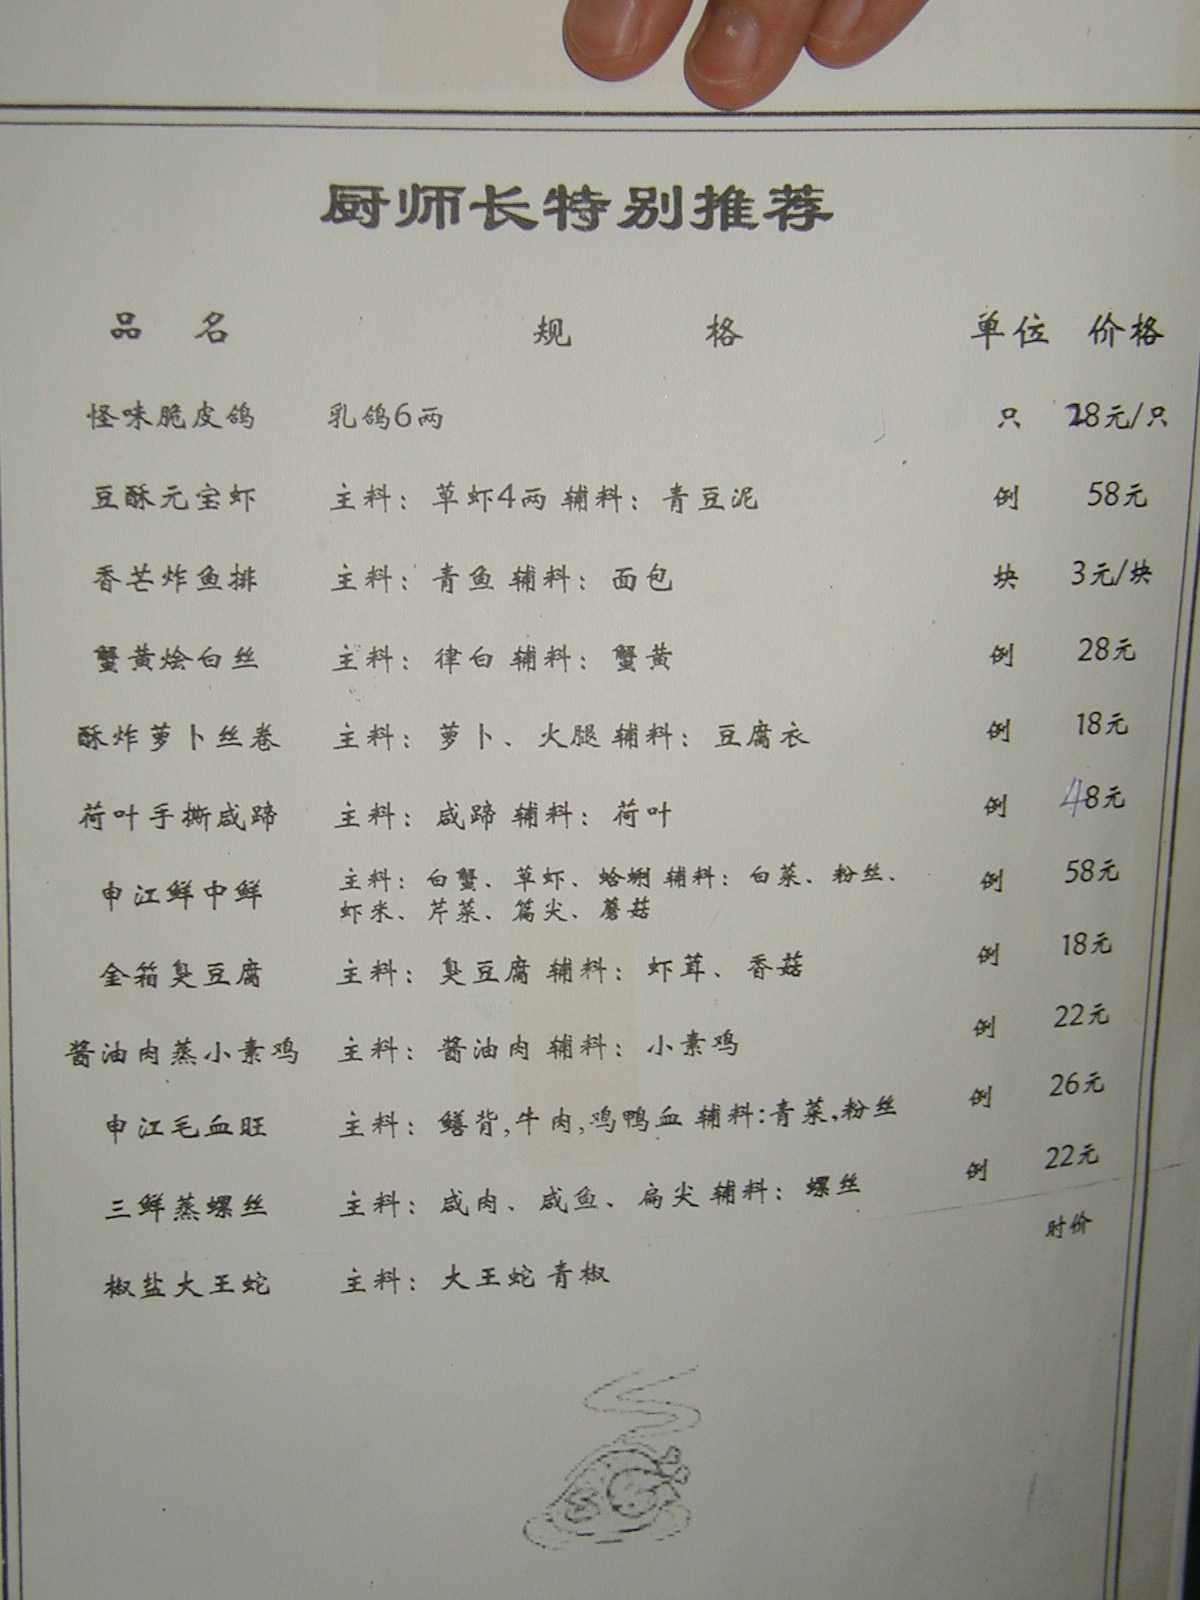 厨师长特别推荐
品 名 规 格 单位 价格
怪味脆皮鸽 乳鸽6两 只 28元/只
豆酥元宝虾 主料：草虾4两 辅料：青豆泥 例 58元
香芒炸鱼排 主料：青鱼 辅料：面包 块 3元/块
蟹黄烩白丝 主料：律白 辅料：蟹黄 例 28元
酥炸萝卜丝卷 主料：萝卜、火腿 辅料：豆腐衣 例 18元
荷叶手撕咸蹄 主料：咸蹄 辅料：荷叶 例 48元
申江鲜中鲜 主料：白蟹、草虾、蛤蜊 辅料：白菜、粉丝、 例 58元
虾米、芹菜、篙尖、蘑菇
金箱臭豆腐 主料：臭豆腐 辅料：虾茸、香菇 例 18元
酱油肉蒸小素鸡 主料：酱油肉 辅料：小素鸡 例 22元
申江毛血旺 主料：鳝背,牛肉,鸡鸭血 辅料:青菜,粉丝 例 26元
三鲜蒸螺丝 主料：咸肉、咸鱼、扁尖 辅料：螺丝 例 22元
椒盐大王蛇 主料：大王蛇 青椒 时价